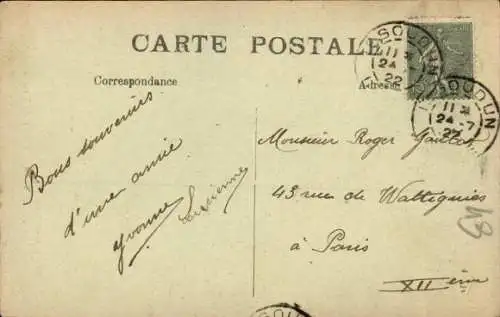 CARTE POSTALE
Correspondance
Adresse
ISSOUDUN
11
24-7
22
ISSOUDUN
11
24-7
22
Bons souvenirs
d'une amie
Yvonne
Lucienne
Monsieur Roger
43 rue de Wattignies
à Paris
XII ème
43